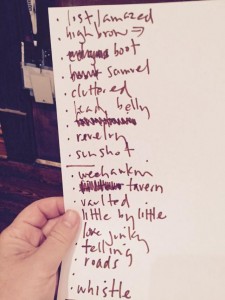 · lost/amazed
· high brow →
· boot
· Samuel
· cluttered
· belly
· revelry
· sunshot
· weehawken
· tavern
· vaulted
· little by little
· love junky
· telling
roads
· whistle